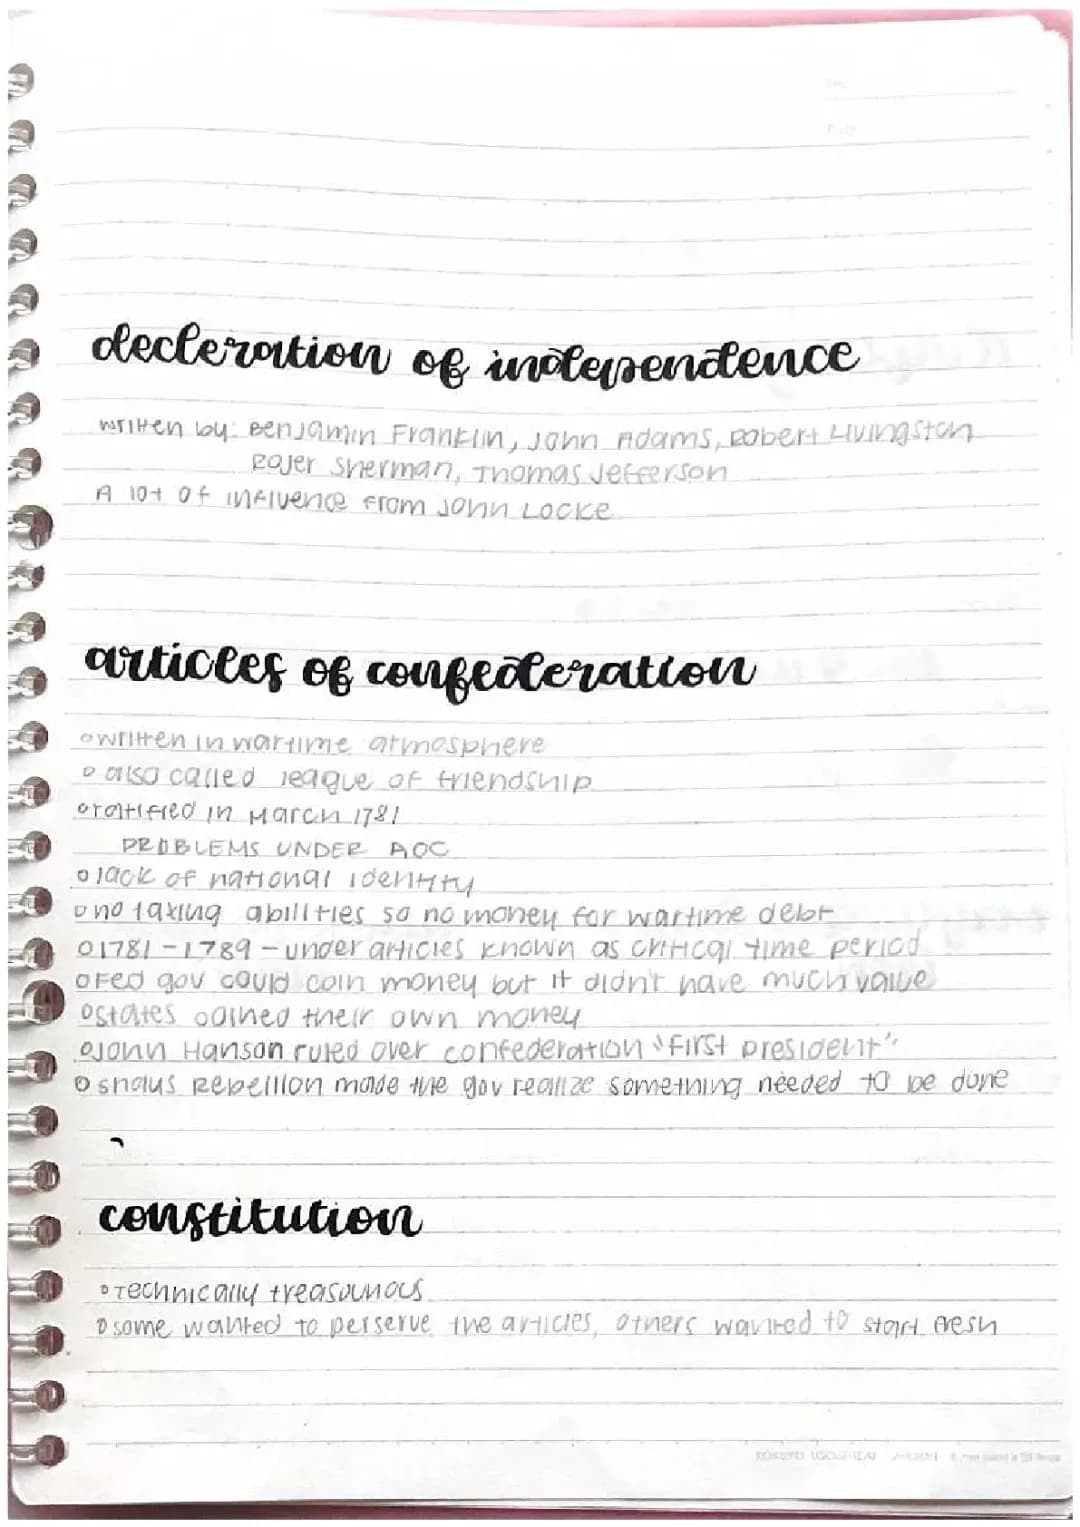 decleration of independence
written by: Benjamin Franklin, John Adams, Robert Livingston
Rojer Sherman, Thomas Jefferson
A lot of influence from John Locke
articles of confederation
written in wartime atmosphere
also called league of friendship
ratified in March 1781
PROBLEMS UNDER AOC
lack of national identity
no taxing abilities so no money for wartime debt
1781-1789 - under articles known as critical time period
Fed gov could coin money but it didn't have much value
states coined their own money
John Hanson ruled over confederation "first president"
shaus Rebellion made the gov realize something needed to be done
constitution
Technically treasounous
some wanted to perserve the articles, others wanted to start fresh
KOKUYO LOOSE-LEAF